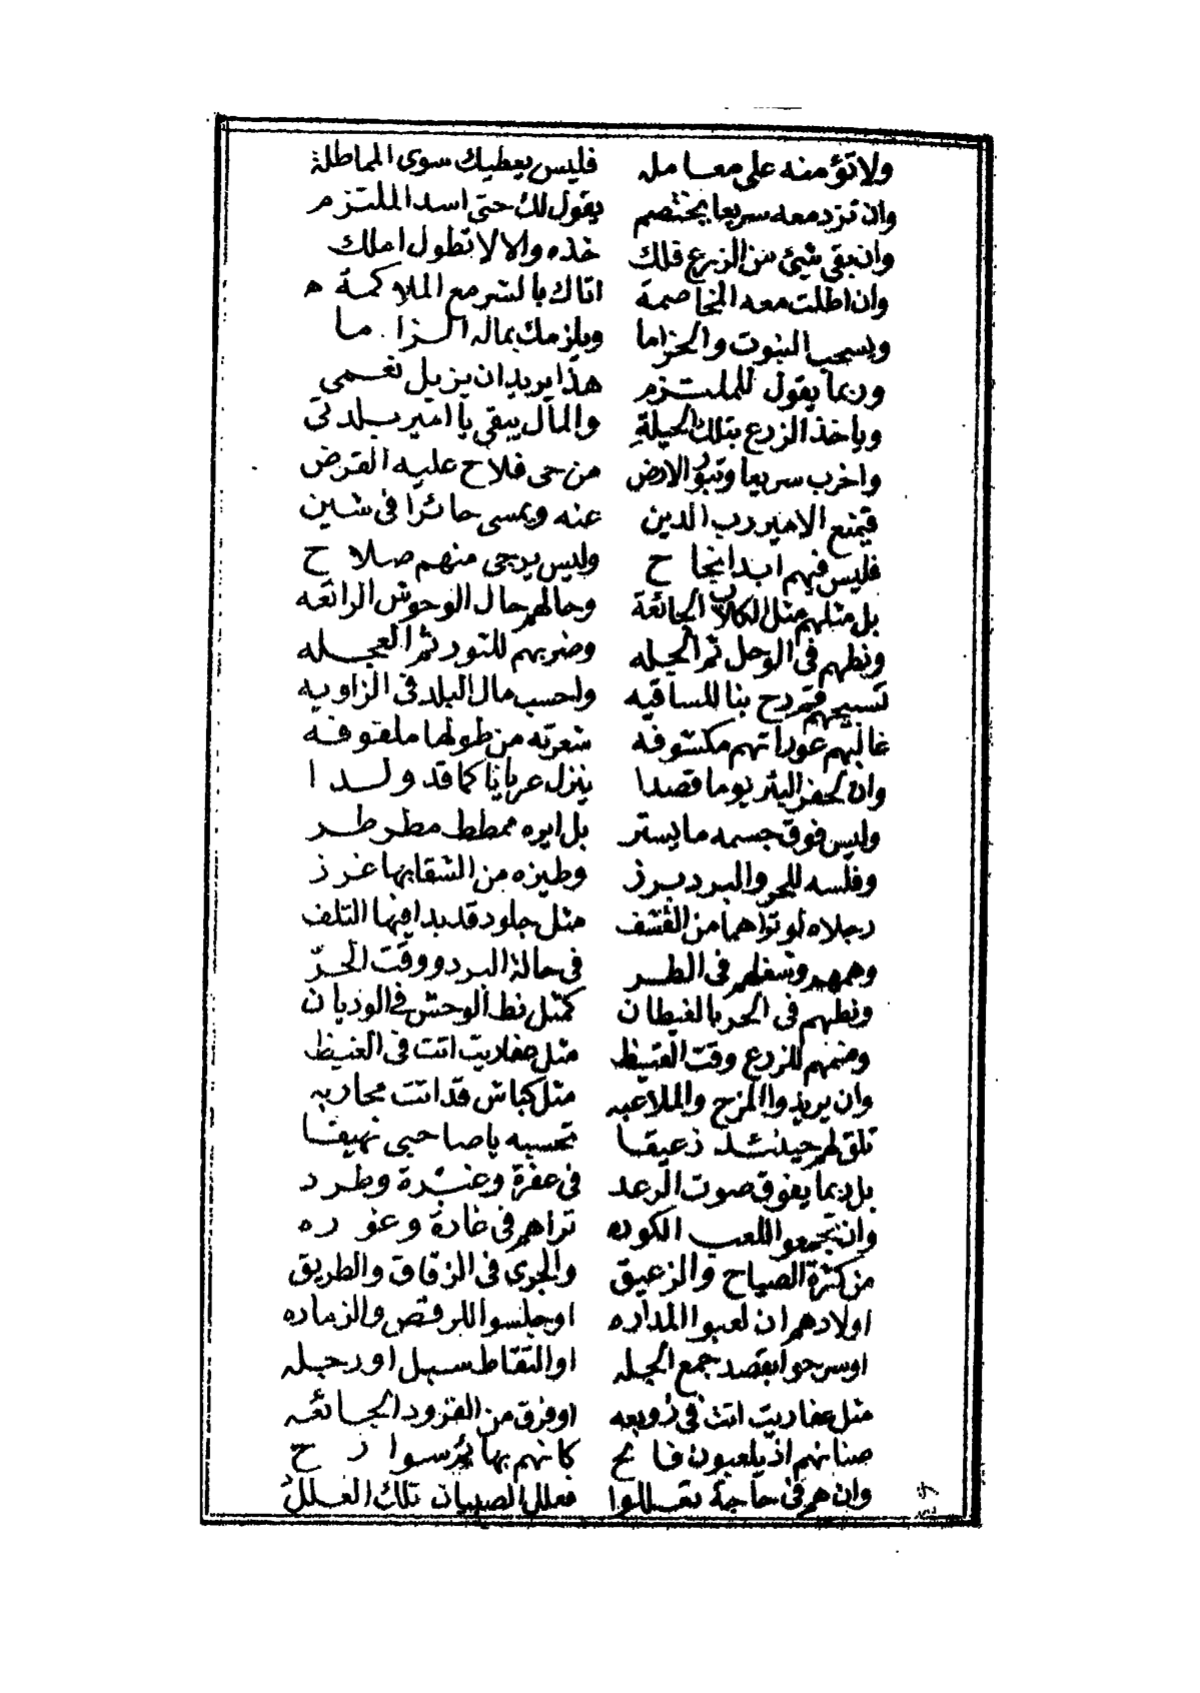 ولا تؤمنه على معامله فليس يعطيك سوى المماطلة
وان تزد معه سريعا يختصم يقول لك حتى اسد الملتزم
وان بقى شيئ من الزرع فلك خذه والا لا تطول املك
وان اطلت معه المخاصمة اتاك بالشر مع الملاكمة ه
ويسحب النبوت والحزاما ويلزمك بماله الزاما
وربما يقول للملتزم هذا يريد ان يزيل نغمى
وياخذ الزرع بتلك الحيلة والمال يبقى يا امير بلدتى
واخرب سريعا وتبور الارض من حى فلاح عليه القرض
فيمنع الامير رب الدين عنه ويمسى حائرا فى شين
فليس فيهم ابدا نجاح وليس يرجى منهم صلاح
بل مثلهم مثل الكلاب الجائعة وحالهم حال الوحوش الرائعه
ونطهم فى الوحل ثم الجله وضربهم للثور ثم العجله
تسبيحهم فرح بنا للساقيه ولحسب مال البلد فى الزاويه
غالبهم عوراتهم مكشوفه شعرته من طولها ملفوفه
وان لحفر البئر يوما قصدا ينزل عريانا كما قد ولدا
وليس فوق جسمه ما يستر بل ايره ممطط مطرطر
وفلسه للحر والبرد برز وطيزه من الشقا بها غرز
رجلاه لو تراهما من القشف مثل جلود قد بدا فيها التلف
وهمهم وشغلهم فى الطر فى حالة البرد ووقت الحرّ
ونطهم فى الحر بالغيطان كمثل نط الوحش فى الوديان
وضمهم للزرع وقت الغيظ مثل عفاريت اتت فى الغيظ
وان يريدوا المزح والملاعبه مثل كباش قد اتت محاربه
تلق لهم حينئذ زعيقا تحسبه يا صاحبى نهيقا
بل ربما يفوق صوت الرعد فى عفرة وغبرة وطرد
وان تجمعوا للعب الكوره تراهم فى غارة وعوره
من كثرة الصياح والزعيق والجرى فى الزقاق والطريق
اولادهم ان لعبوا المداره او جلسوا للرقص والزماره
او سرحوا بقصد جمع الجله او التقاط سبل او رجله
مثل عفاريت اتت فى زوبعه او فرق من القرود الجائعه
صنانهم اذ يلعبون فايح كانهم بها
وان هم فى حاجة تعللوا فعلل الصبيان تلك العلل